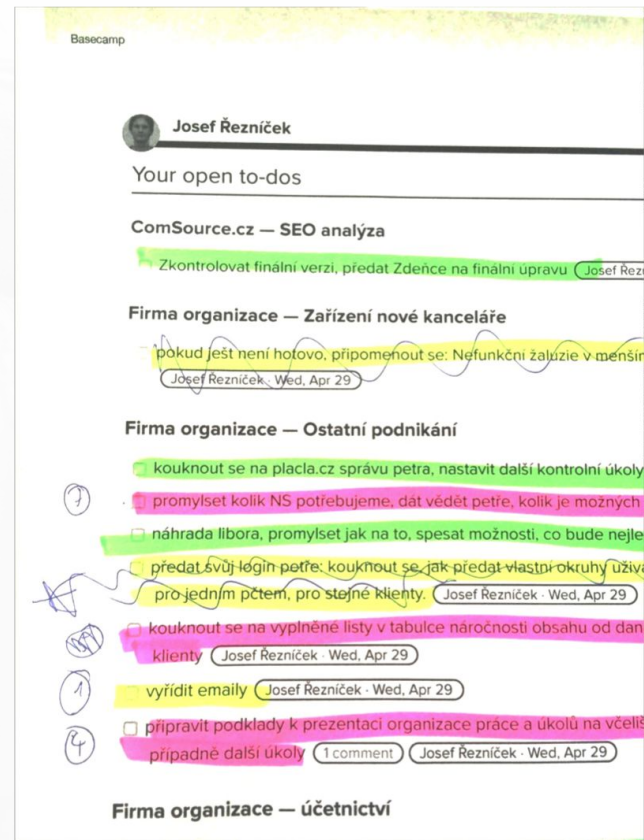 Basecamp
Josef Řezníček
Your open to-dos
ComSource.cz — SEO analýza
Zkontrolovat finální verzi, předat Zdeňce na finální úpravu Josef Řez
Firma organizace — Zařízení nové kanceláře
pokud ješt není hotovo, připomenout se: Nefunkční žaluzie v menším
Josef Řezníček · Wed, Apr 29
Firma organizace — Ostatní podnikání
kouknout se na placla.cz správu petra, nastavit další kontrolní úkoly
7 promylset kolik NS potřebujeme, dát vědět petře, kolik je možných
náhrada libora, promylset jak na to, spesat možnosti, co bude nejle
předat svůj login petře: kouknout se jak předat vlastní okruhy uživa
pro jedním pčtem, pro stejné klienty. Josef Řezníček · Wed, Apr 29
kouknout se na vyplněné listy v tabulce náročnosti obsahu od dan
klienty Josef Řezníček · Wed, Apr 29
1 vyřídit emaily Josef Řezníček · Wed, Apr 29
4 připravit podklady k prezentaci organizace práce a úkolů na včeliš
případně další úkoly 1 comment Josef Řezníček · Wed, Apr 29
Firma organizace — účetnictví